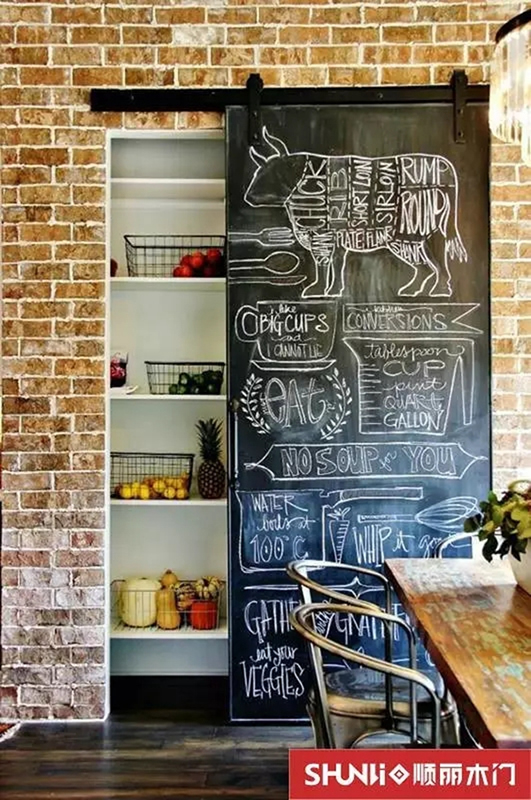 CHUCK
RIB
SHORT LOIN
SIRLOIN
RUMP
ROUND
SHANK
PLATE
FLANK
SHANK
i like
BIG CUPS
and
I CANNOT LIE
kitchen
CONVERSIONS
tablespoon
CUP
pint
QUART
GALLON
eat
NO SOUP for YOU
WATER
boils at
100°C
WHIP it good
GATHER
eat your
VEGGIES
SHUNLi 顺丽木门